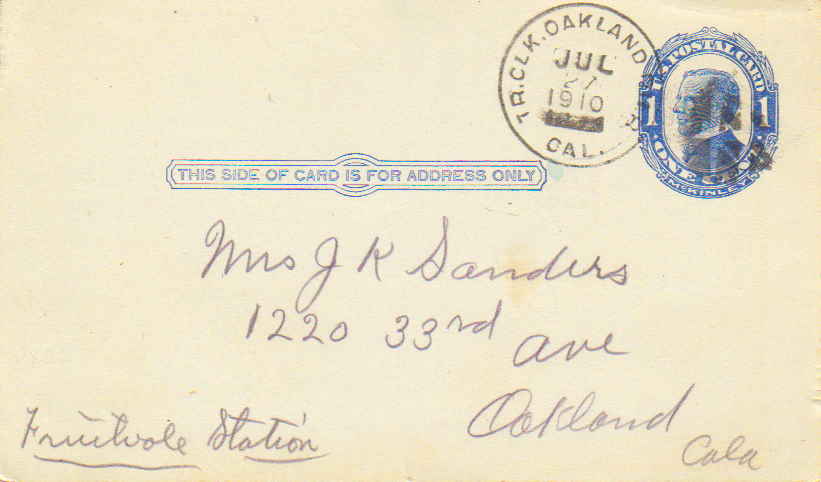 TR.CLK.OAKLAND
JUL
27
1910
CAL.
U.S. POSTAL CARD
1 1
ONE
McKINLEY
THIS SIDE OF CARD IS FOR ADDRESS ONLY
Mrs J K Sanders
1220 33rd Ave
Oakland
Cala
Fruitvale Station